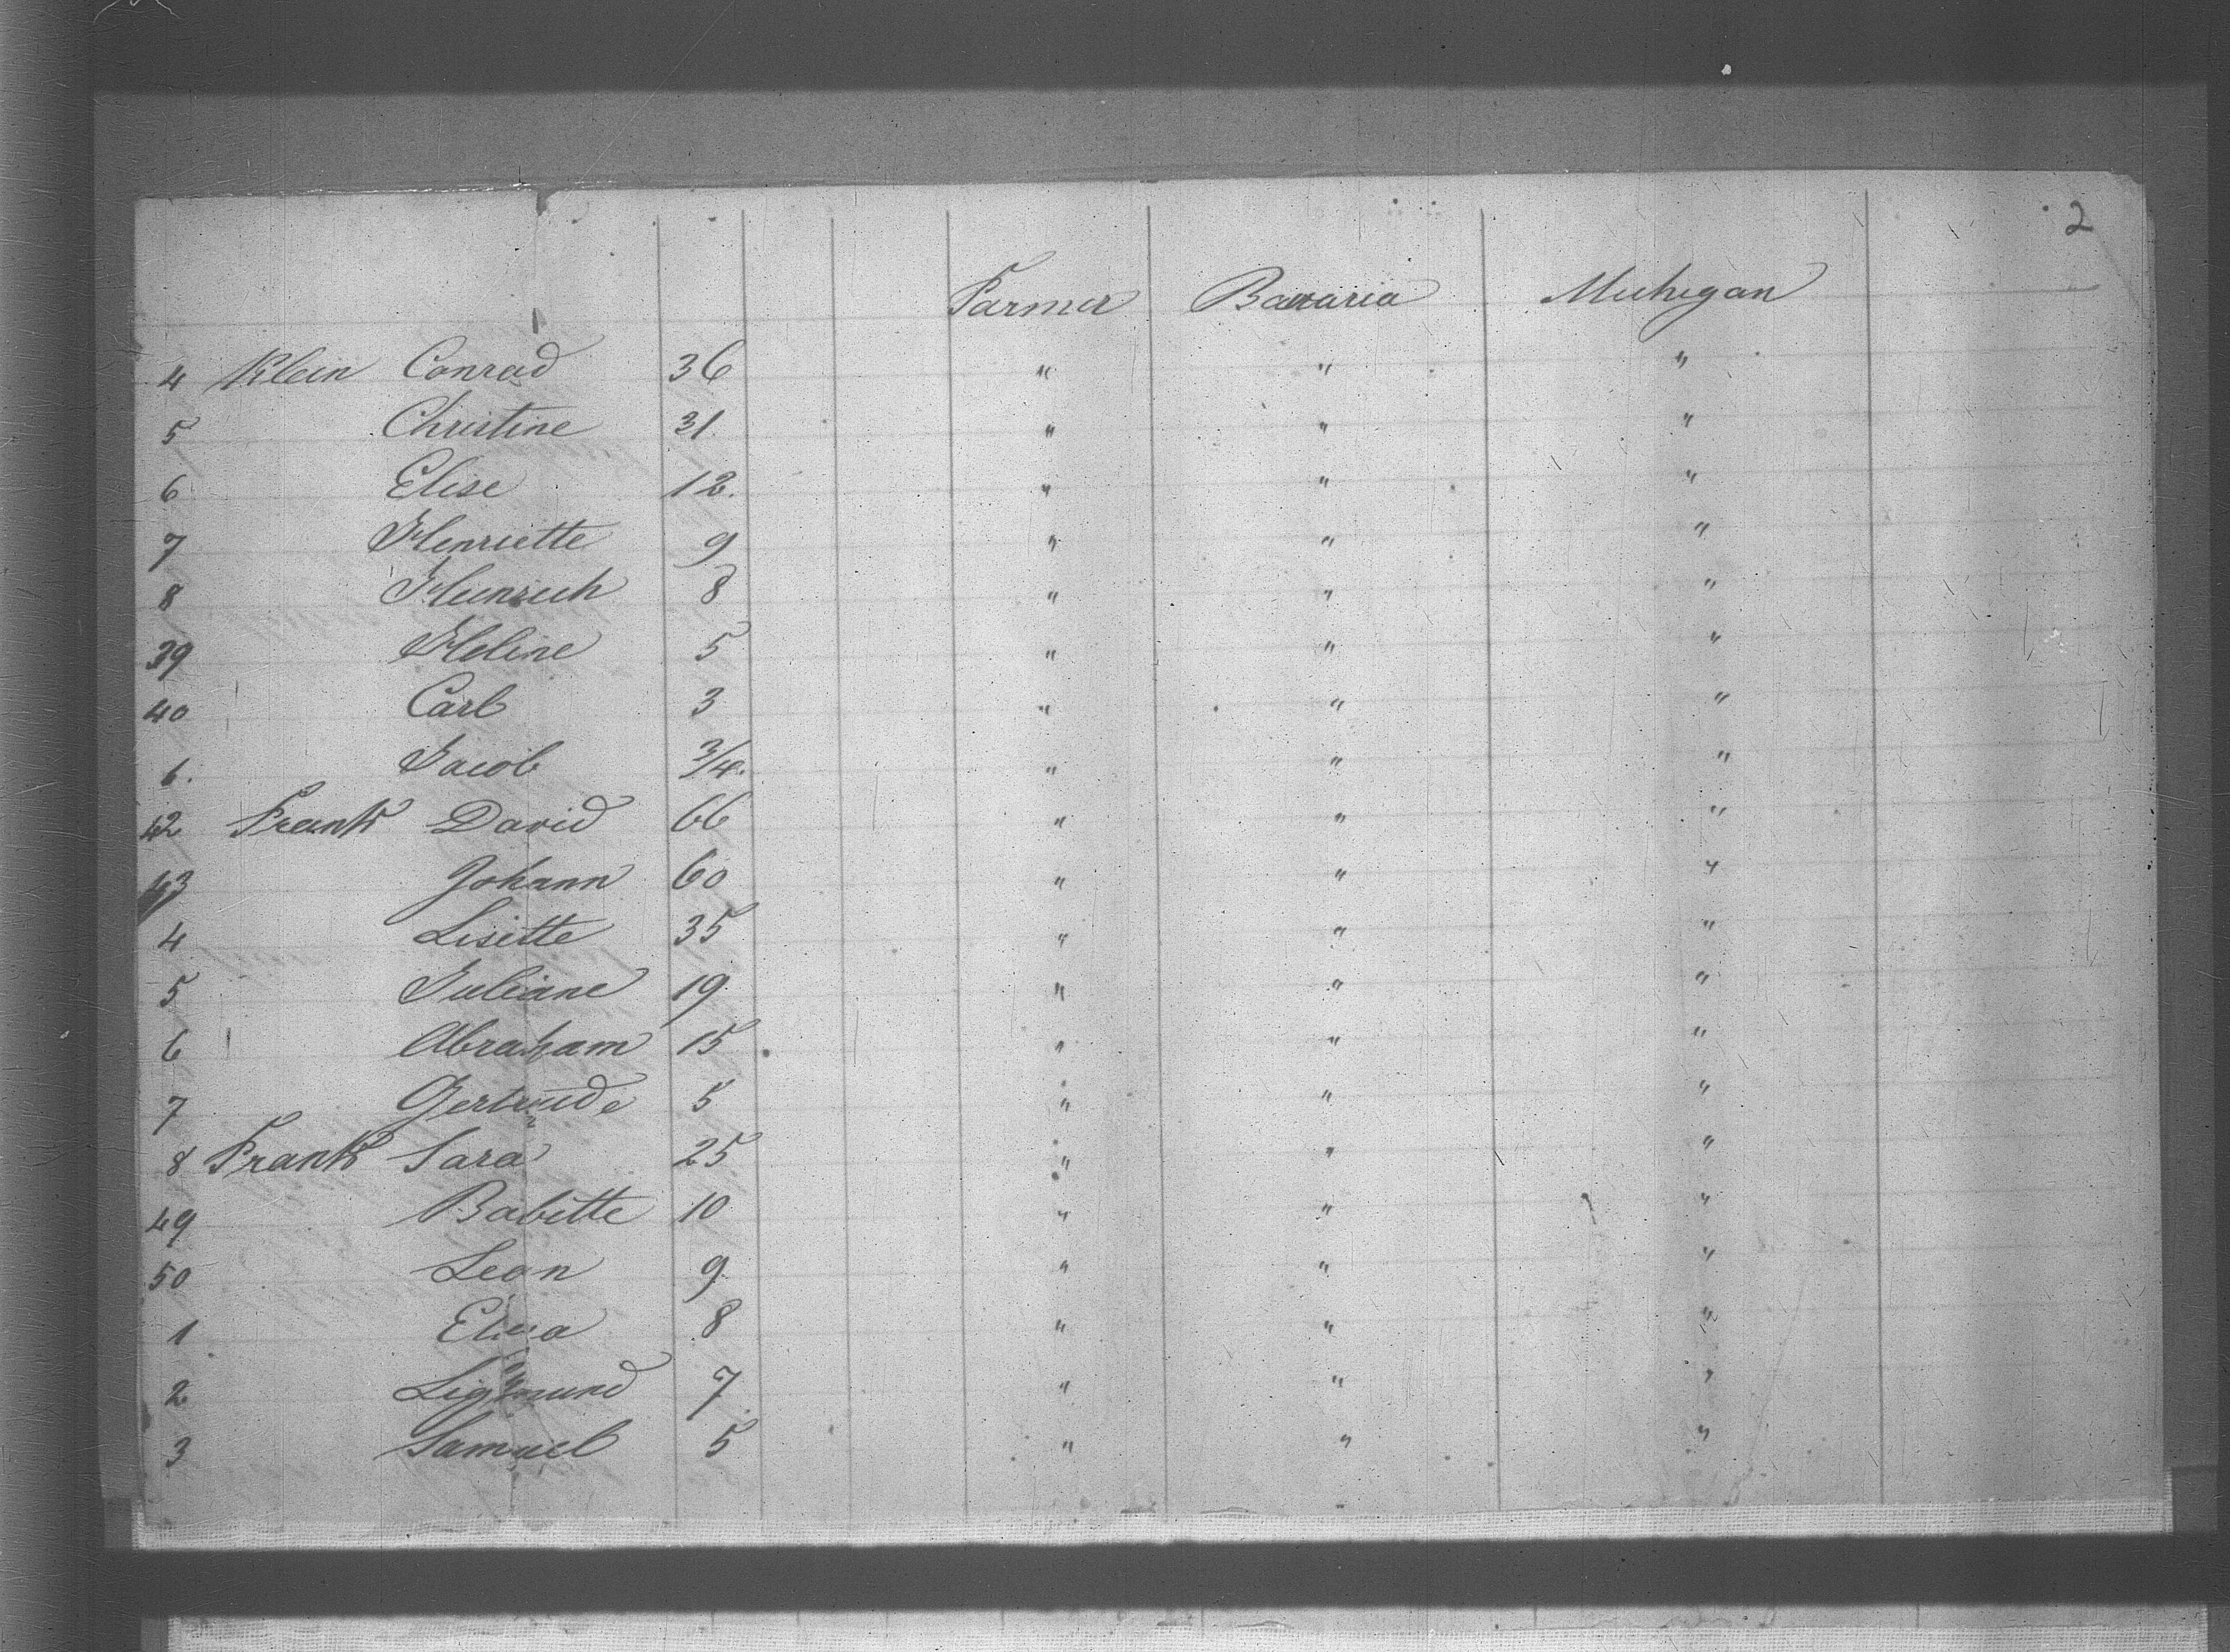 2
Farmer Bavaria Michigan
4 Klein Conrad 36 " " "
5 Christine 31 " " "
6 Elise 12. " " "
7 Henriette 9 " " "
8 Heinrich 8 " " "
39 Heline 5 " " "
40 Carl 3 " " "
1. Jacob 3/4. " " "
42 Frank David 66 " " "
43 Johann 60 " " "
4 Lisette 35 " " "
5 Juliane 19 " " "
6 Abraham 15 " " "
7 Gertrude 5 " " "
8 Frank Sara 25 " " "
49 Babette 10 " " "
50 Leon 9 " " "
1 8 " " "
2 Sigmund 7 " " "
3 Samuel 5 " " "